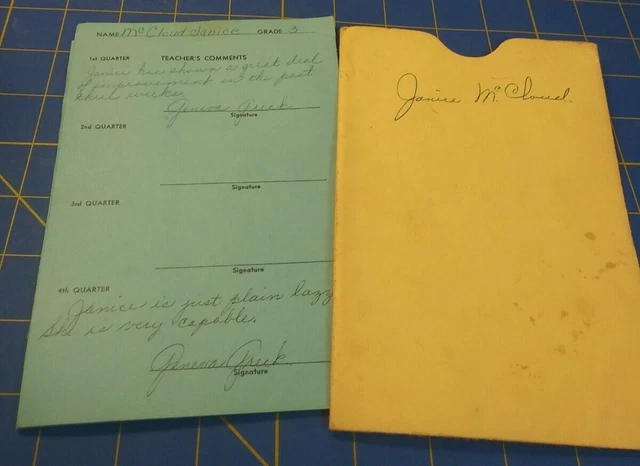 NAME McCloud Janice GRADE 3
1st QUARTER TEACHER'S COMMENTS
Janice has shown a great deal
of improvement in the past
three weeks.
Geneva Greek
Signature
2nd QUARTER
Signature
3rd QUARTER
Signature
4th QUARTER
Janice is just plain lazy
She is very capable.
Geneva Greek
Signature
Janice McCloud